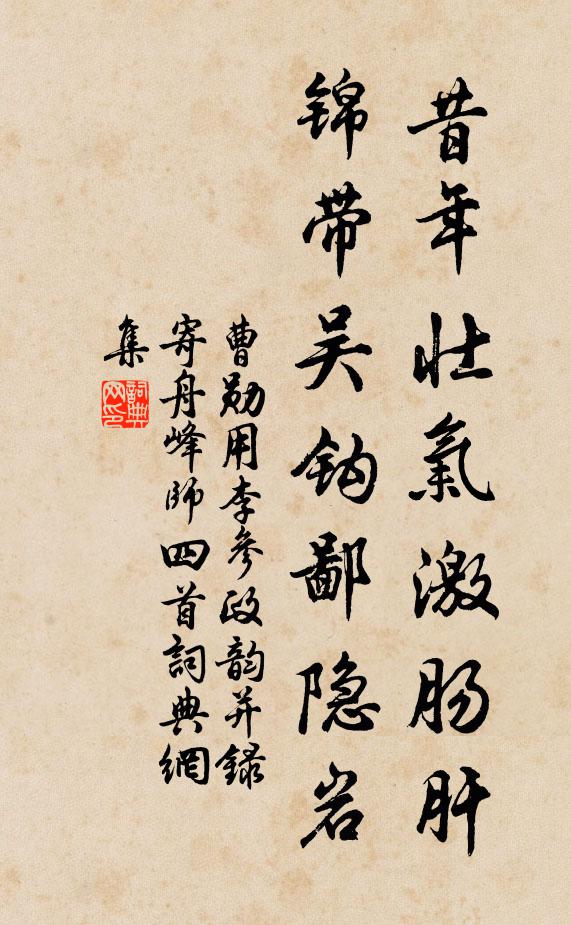 昔年壮氣激肠肝
锦带吴钩鄙隐岩
曹勋用李參政韵并録
寄舟峰師四首詞典網
集
詞典网印